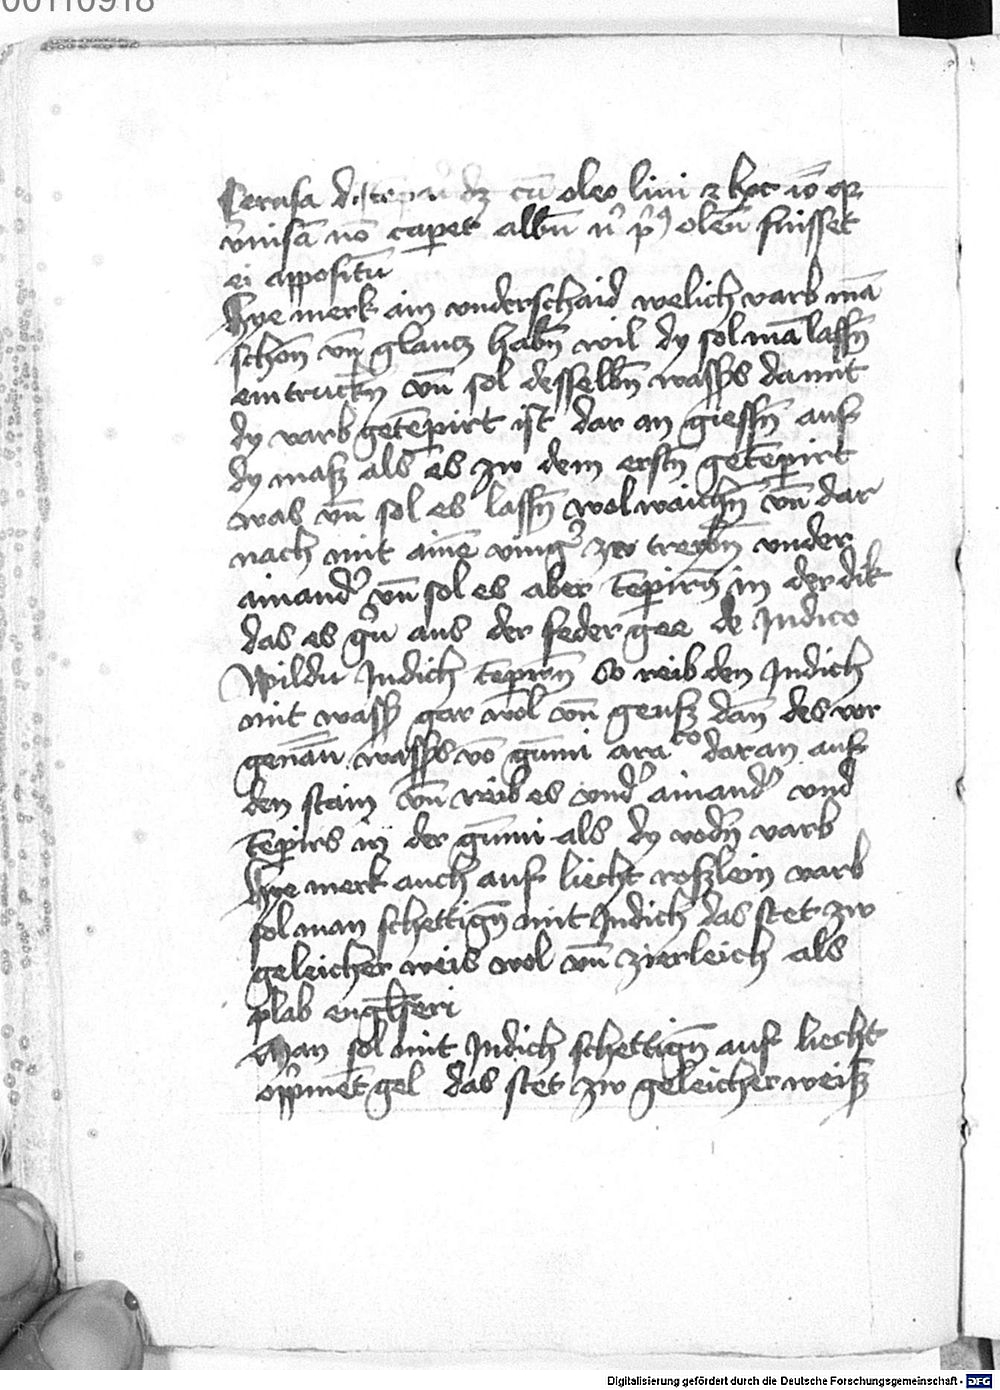 00110918
Cerusa distēperat᷑ dꝫ cū oleo lini ⁊ hoc iō qꝛ
v̉nisā nō caperet albū nˢ pˢ oleū fuisset
ei appositū
Hye merk ain vnderschaid welich varb mā
schōn vn̄ glantz habn̄ wil dy sol mā lassn̄
eintruckn̄ vn̄ sol desselbn̄ wassˢs damit
dy varb getēpirt ist dar an giessn̄ auf
dy masz als es zw dem erstn̄ getēpirt
was vn̄ sol es lassn̄ wol waichn̄ vn̄ dar
nach mit ainē vingˢ zw treybn̄ vnder
ainandˢ vn̄ sol es aber tēpirn̄ in der dik
das es gˢn aus der feder gee de Indico
Wildu Indich tēpirn̄ so reib den Indich
mit wassˢ gar wol vn̄ geusz dān des vor
genān̄ wassˢs vō gūmi ara co daran auf
den stain vn̄ reib es vndˢ ainandˢ vnd
tēpirs in der gūmi als dy vodˢn varb
Hye merk auch auf liecht roslein varb
sol man schettign̄ mit Indich das stet zw
geleicher weis wol vn̄ zierleich als
plab engelseri
Man sol mit Indich schettign̄ auf liecht
opˢmēt gel das stet zw geleicher weisz
Digitalisierung gefördert durch die Deutsche Forschungsgemeinschaft - DFG